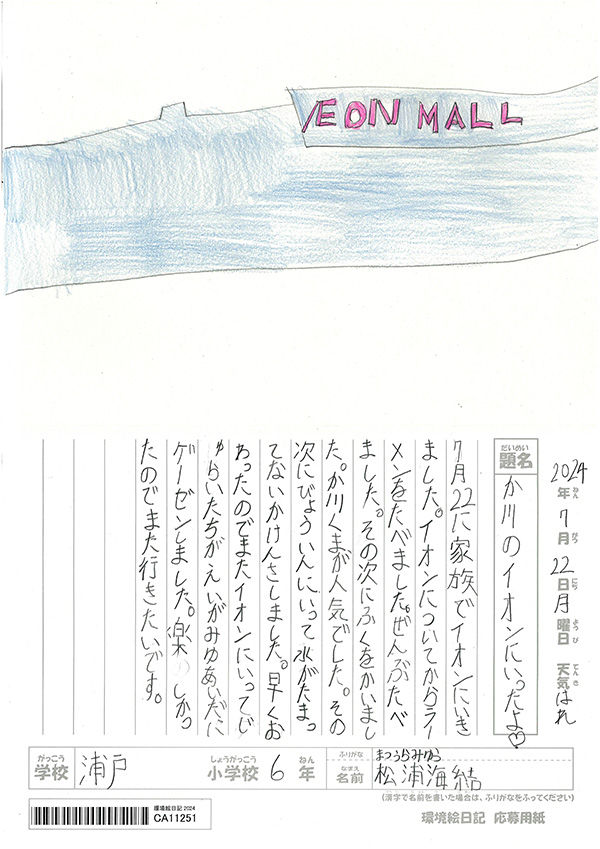 ÆON MALL
2024年7月22日月曜日 天気はれ
ねん がつ にち ようび てんき
だいめい
題名
か川のイオンにいったよ♡
7月22に家族でイオンにいき
ました。イオンについてからラー
メンをたべました。ぜんぶたべ
ました。その次にふくをかいまし
た。か川くまが人気でした。その
次にびょういんにいって水がたまっ
てないかけんさしました。早くお
わったのでまたイオンにいってじ
ゅらいたちがえいがみゆあいだに
ゲーゼンしました。楽しかっ
たのでまた行きたいです。
がっこう
学校 浦戸
しょうがっこう ねん
小学校 6年
ふりがな まつうらみゆう
なまえ
名前 松浦海結
(漢字で名前を書いた場合は、ふりがなをふってください)
環境絵日記 2024
CA11251
環境絵日記 応募用紙